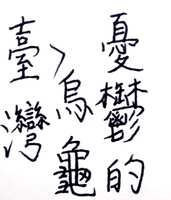 憂鬱的
、烏龜
臺灣